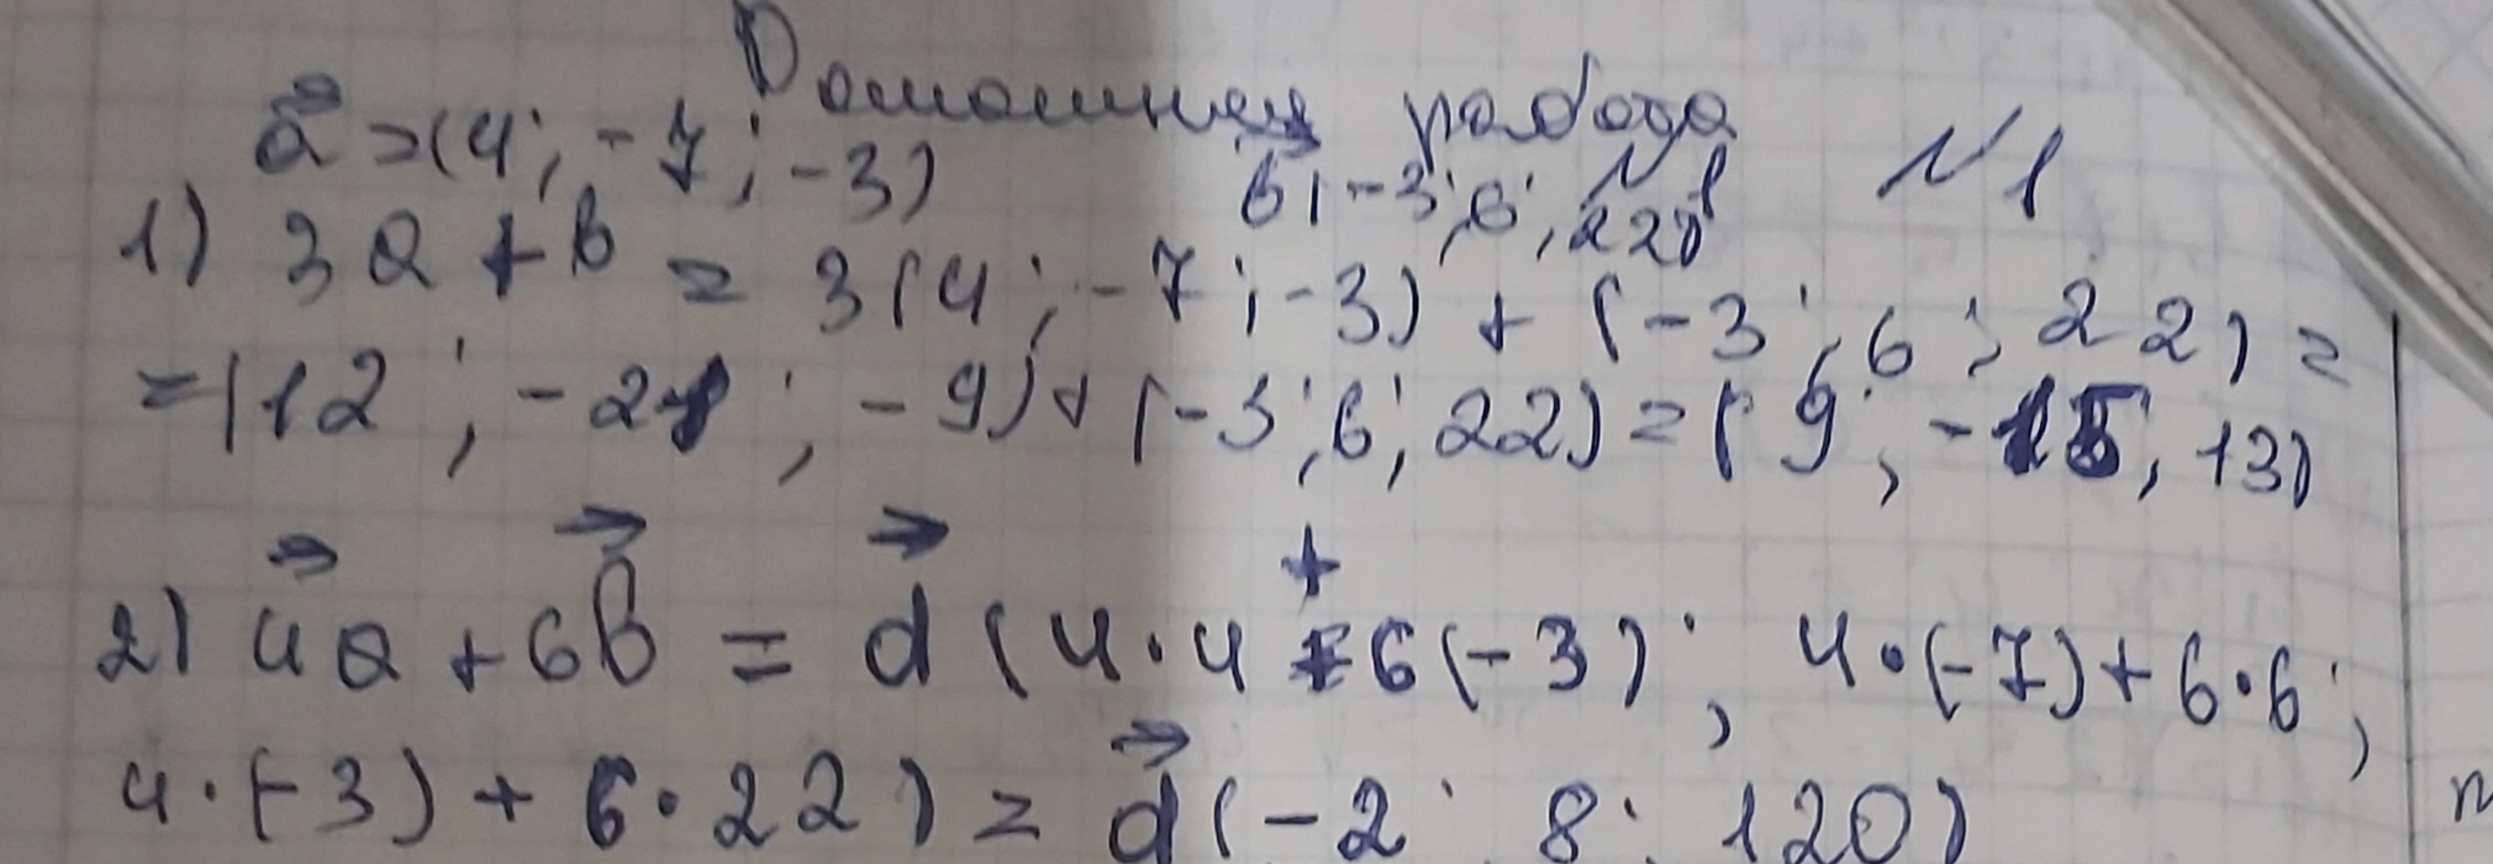 Домашняя работа
№1
a⃗ = (4; -7; -3) b⃗ (-3; 6; 22) №1
1) 3a + b = 3(4; -7; -3) + (-3; 6; 22) =
= (12; -21; -9) + (-3; 6; 22) = (9; -15; 13)
2) 4a⃗ + 6b⃗ = d⃗ (4·4 + 6(-3); 4·(-7) + 6·6;
4·(-3) + 6·22) = d⃗ (-2; 8; 120)